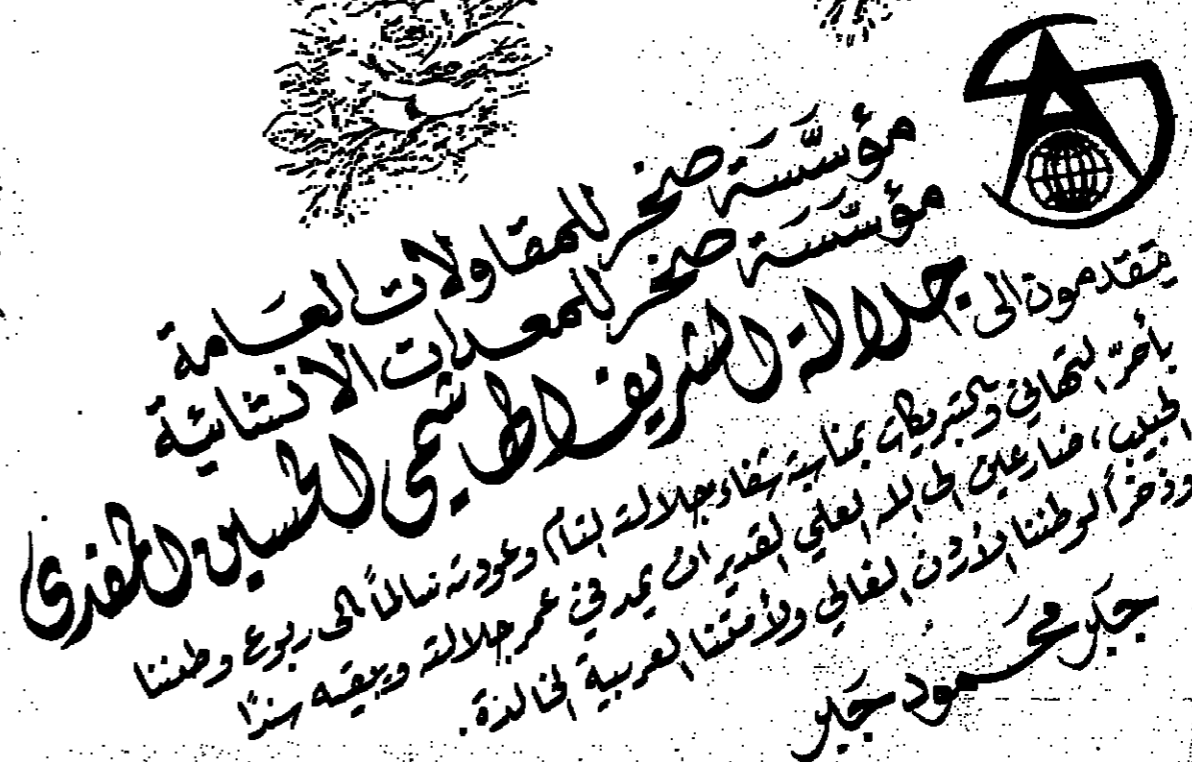 مؤسّسَة صخر للمقاولات العَامة
مؤسّسَة صخر للمعدات الانشائية
يتقدمون الى جلالة الشريف الهاشمي الحسين المفدى
بأحرّ التهاني والتبريكات بمناسبة شفاء جلالته التام وعودته سالماً الى ربوع وطننا
الحبيب، ضارعين الى الله العلي القدير ان يمد في عمر جلالته ويبقيه سندًا
وذخراً لوطننا الأردن الغالي ولأمتنا العربية الخالدة.
جبر محمود جبر